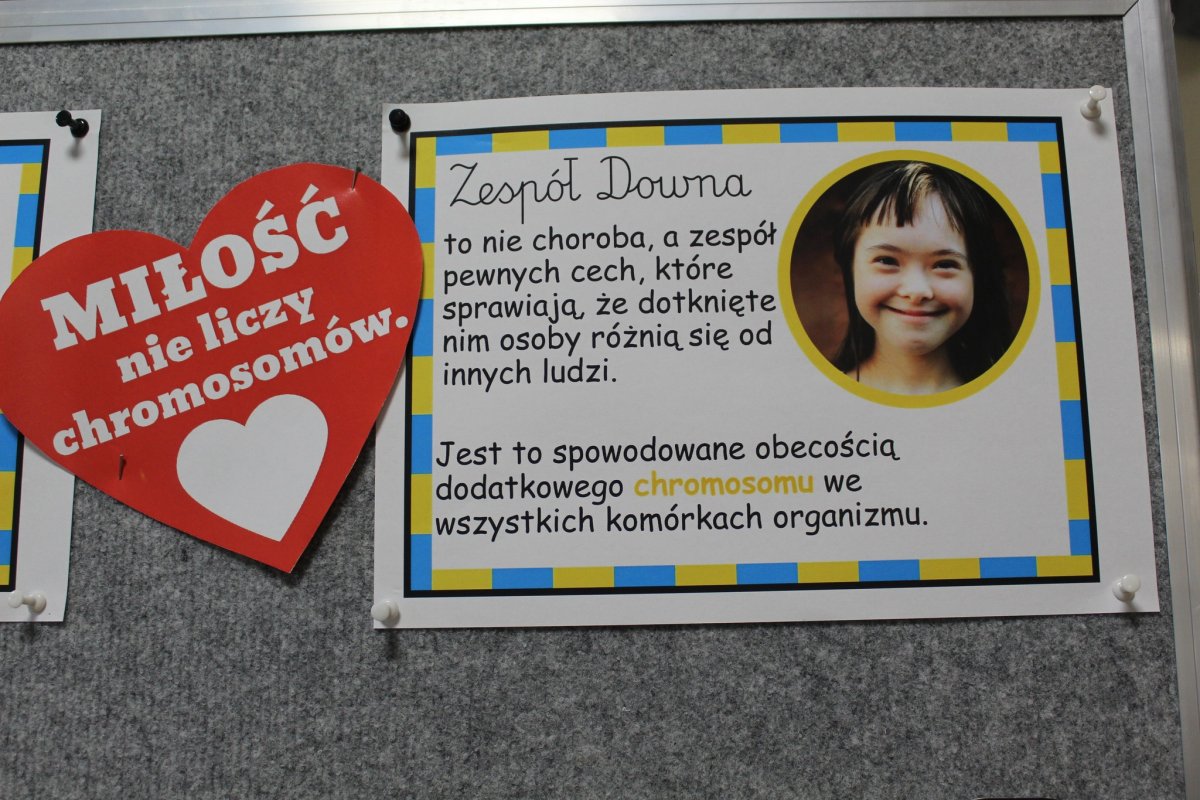 MIŁOŚĆ
nie liczy
chromosomów.
Zespół Downa
to nie choroba, a zespół
pewnych cech, które
sprawiają, że dotknięte
nim osoby różnią się od
innych ludzi.
Jest to spowodowane obecością
dodatkowego chromosomu we
wszystkich komórkach organizmu.